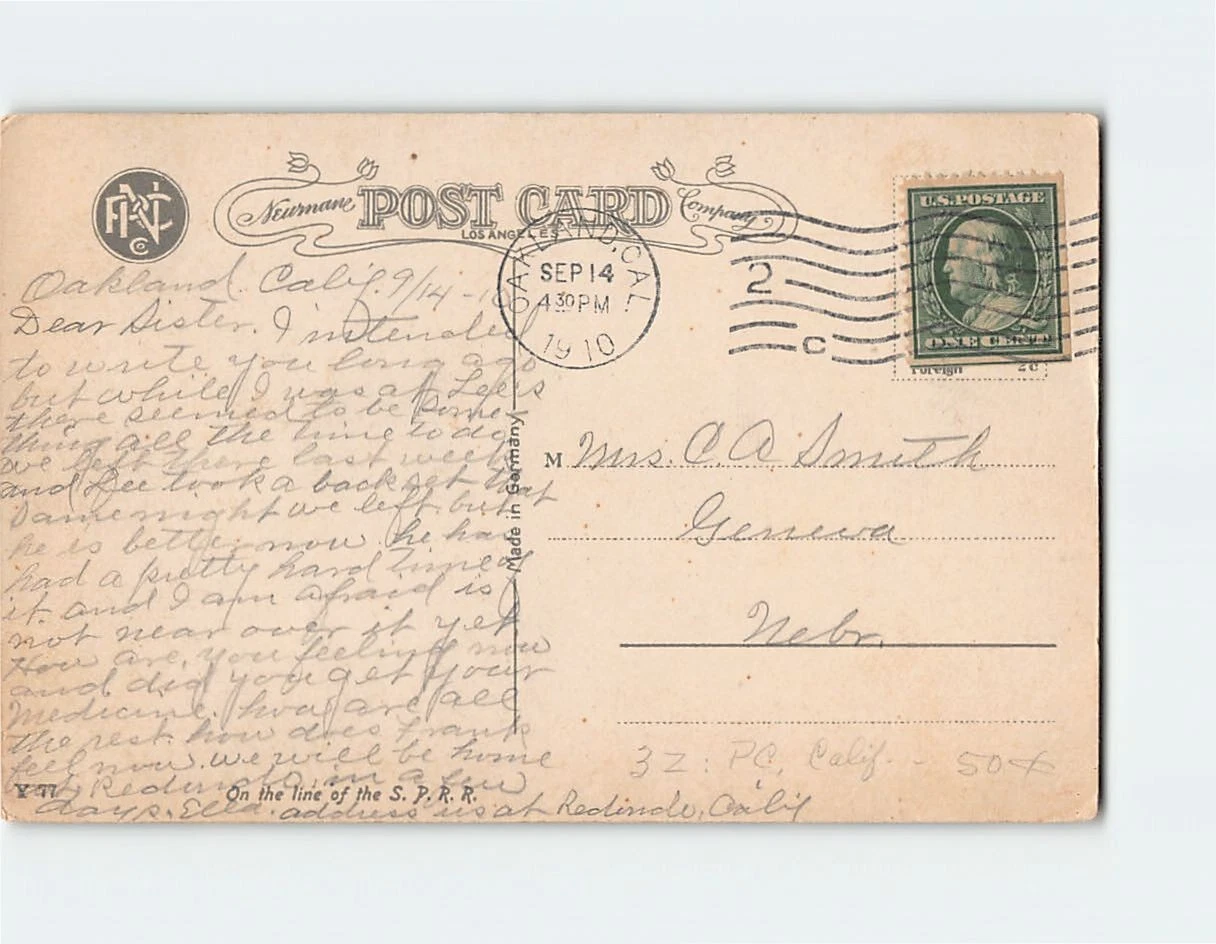 Neumane POST CARD Company
LOS ANGELES
OAKLAND, CAL
SEP 14
4 30 PM
1910
2
C
U.S. POSTAGE
ONE CENT
Foreign 2c
Oakland Calif. 9/14-10
Dear Sister. I intended
to write you long ago
but while I was at Lee's
there seemed to be some
thing all the time to do
we left there last week
and Lee took a backset that
same night we left but
he is better now he has
had a pretty hard time of
it and I am afraid is
not near over it yet
How are you feeling now
and did you get your
Medicine. how are all
the rest. how does Frank
feel now. we will be home
Redindo in a few
days. Ella. address us at Redindo, Calif
Made in Germany
M Mrs. C A Smith
Geneva
Nebr.
3Z: PC, Calif. - 50
Y 77
On the line of the S. P. R. R.